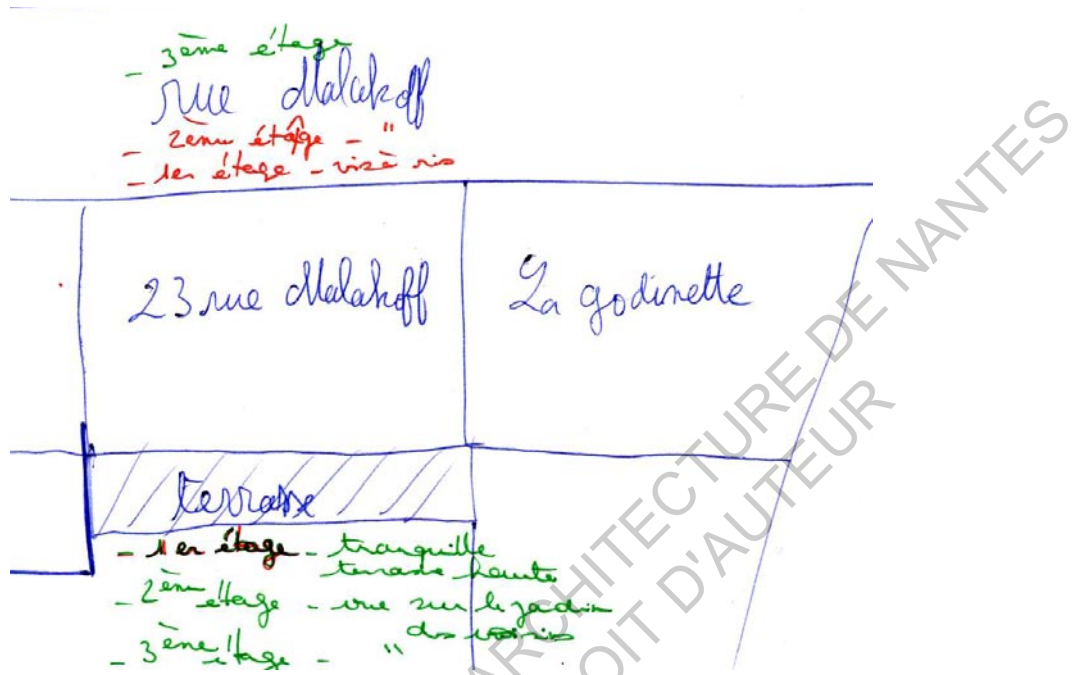 - 3ème étage
rue Malakoff
- 2ème étage - "
- 1er étage - vis à vis
23 rue Malakoff
La godinette
terrasse
- 1er étage - tranquille
terrasse haute
- 2ème étage - vue sur le jardin
des voisins
- 3ème étage - "
ARCHITECTURE DE NANTES
OIT D'AUTEUR